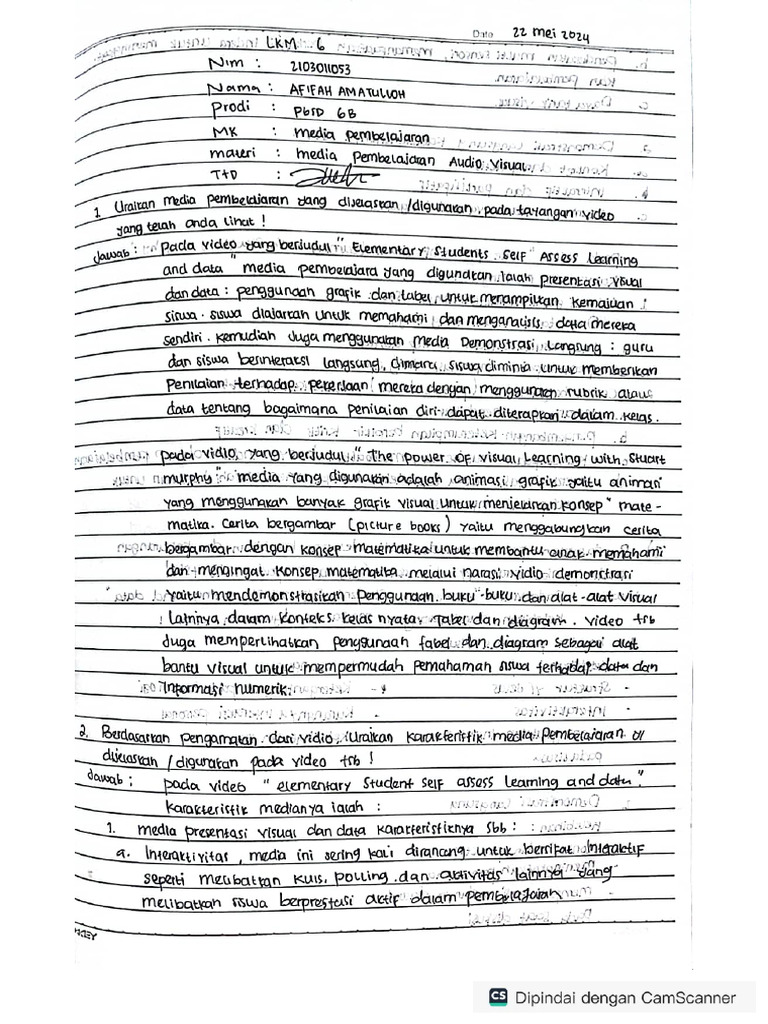 Date 22 mei 2024
LKM 6
Nim : 2103011053
Nama : AFIFAH AMATULLOH
Prodi : PBSD 6B
MK : media pembelajaran
materi : media Pembelajaran Audio Visual
TTD :
1. Uraikan media pembelajaran yang dijelaskan /digunakan pada tayangan video
yang telah anda lihat !
Jawab : Pada video yang berjudul " Elementary Students Self Assess Learning
and data " media pembelajara yang digunakan ialah presentasi visual
dan data : penggunaan grafik dan tabel untuk menampilkan kemajuan
siswa. siswa diajarkan untuk memahami dan menganalisis data mereka
sendiri. Kemudian Juga menggunakan media Demonstrasi Langsung : guru
dan siswa berinteraksi langsung, dimana siswa diminta untuk memberikan
Penilaian terhadap pekerjaan mereka dengan menggunakan rubrik atau
data tentang bagaimana penilaian diri dapat diterapkan dalam kelas.
pada vidio yang berjudul " The power of visual Learning with Stuart
murphy " media yang digunakan adalah animasi grafik yaitu animasi
yang menggunakan banyak grafik visual untuk menjelaskan konsep " mate-
matika. Cerita bergambar (picture books) yaitu menggabungkan cerita
bergambar dengan konsep matematika untuk membantu anak memahami
dan mengingat konsep matematika melalui narasi vidio demonstrasi
yaitu mendemonstrasikan Penggunaan buku-buku dan alat-alat visual
lainnya dalam konteks kelas nyata. Tabel dan diagram. video tsb
Juga memperlihatkan penggunaan tabel dan diagram sebagai alat
bantu visual untuk mempermudah pemahaman siswa terhadap data dan
Informasi numerik.
2. Berdasarkan pengamatan dari vidio, Uraikan karakteristik media Pembelajaran yg
dijelaskan / digunakan pada video tsb !
Jawab : pada video " elementary Student self assess Learning and data ".
karakteristik medianya ialah :
1. media presentasi visual dan data karakteristiknya sbb :
a. Interaktivitas, media ini sering kali dirancang untuk bersifat Interaktif
seperti melibatkan kuis, polling dan aktivitas lainnya yang
melibatkan siswa berprestasi aktif dalam pembelajaran
CS Dipindai dengan CamScanner